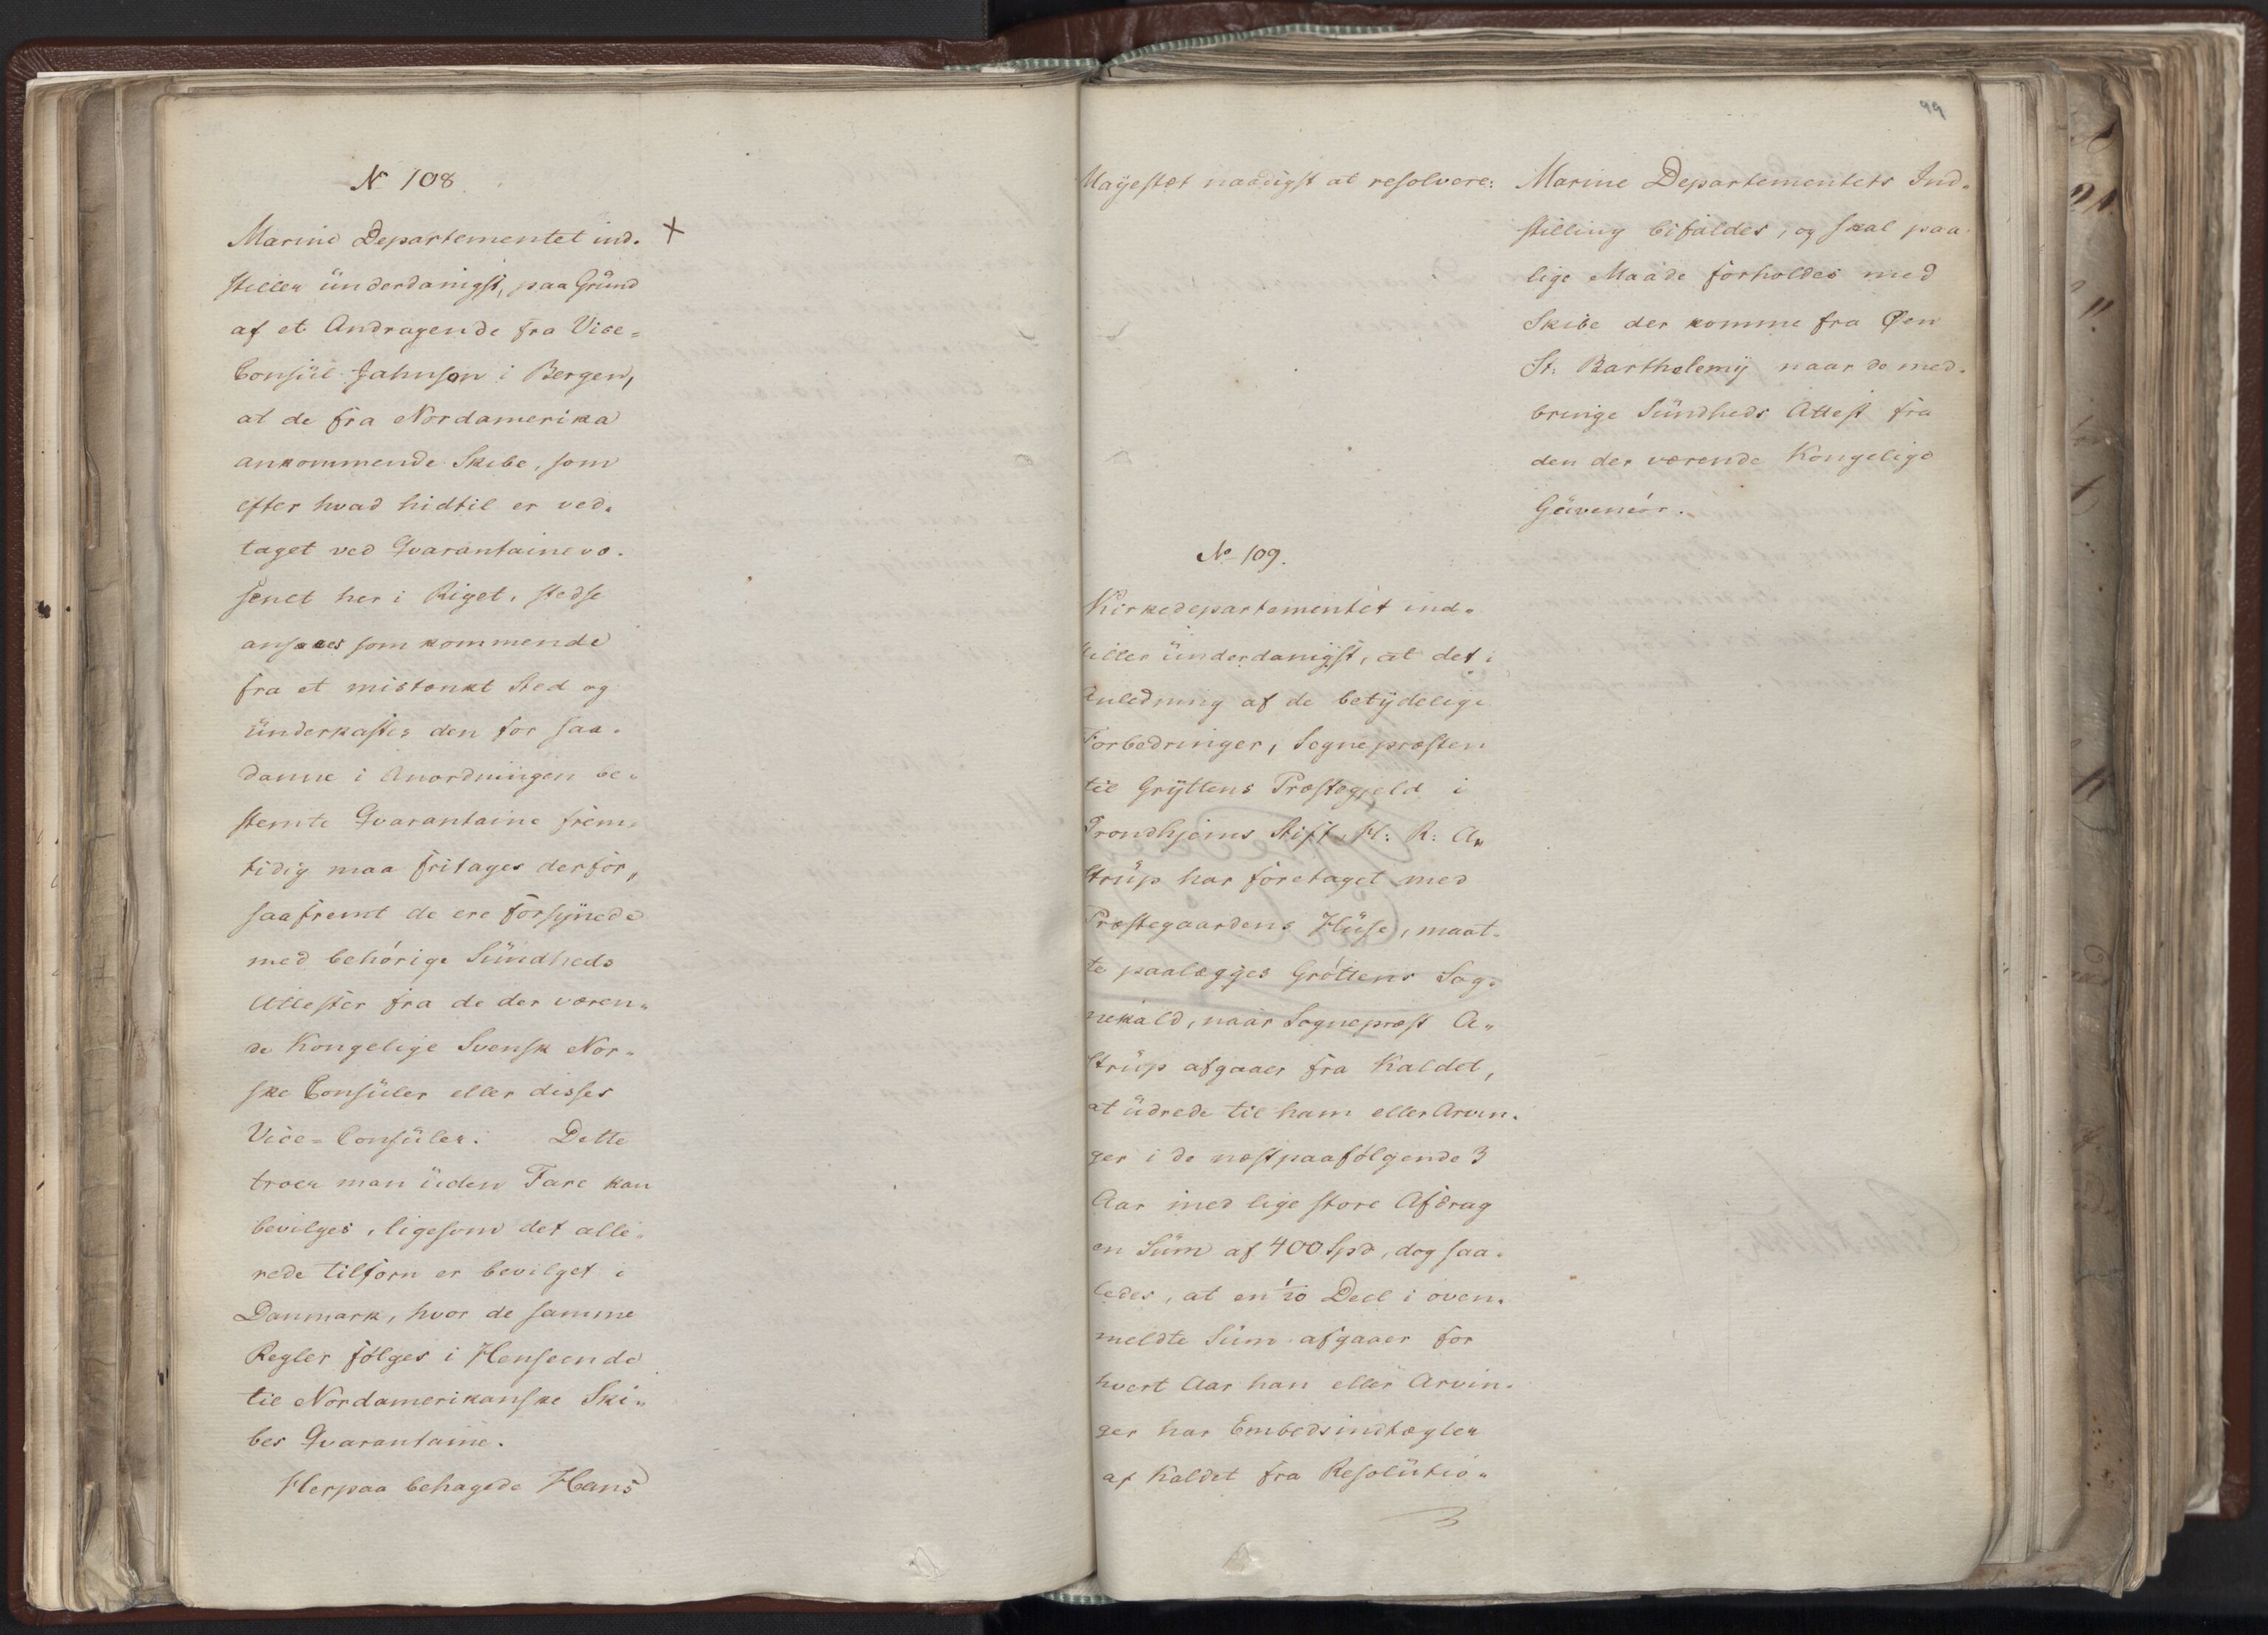 N 108
Marine Departementet ind-
stiller ünderdanigst, paa Grund
af et Andragende fra Vice=
Consül Jahnson i Bergen,
at de fra Nordamerika
ankommende Skibe, som
efter hvad hidtil er ved-
taget ved Qvarantainevæ-
senet her i Riget, stedse
ansaaes som kommende
fra et mistænkt Sted og
ünderkastes den for saa-
danne i Anordningen be-
stemte Qvarantaine frem-
tidig maa fritages derfor,
saafremt de ere forsÿnede
med behórige Sündheds
Attester fra de der væren-
de Kongelige Svensk Nor-
ske Consüler eller disses
Vice=Consüler. Dette
troer man üden Fare kan
bevilges, ligesom det alle-
rede tilforn er bevilget i
Danmark, hvor de samme
Regler fólges i Henseende
til Nordamerikanske Ski-
bes Qvarantaine.
Herpaa behagede Hans
99
Mayestæt naadigst at resolvere:
Marine Departementets Ind-
stilling bifaldes, og skal paa
lige Maade forholdes med
Skibe der komme fra Øen
St: Barthelemÿ naar de med-
bringe Sündheds Attest fra
den der værende Kongelige
Güvenór.
No 109.
Kirkedepartementet ind-
stiller ünderdanigst, at det i
Anledning af de betÿdelige
Forbedringer, Sognepræsten
til Grÿttens Præstegjeld i
Trondhjems Stift, H: R: A-
strüp har foretaget med
Præstegaardens Hüse, maat-
te paalægges Grÿttens Sog-
nekald, naar Sognepræst A-
strüp afgaaer fra Kaldet,
at üdrede til ham eller Arvin-
ger i de næstpaafólgende 3
Aar med lige store Afdrag
en Süm af 400 Spd, dog saa-
ledes, at en 1/20 Deel i oven-
meldte Süm afgaaer for
hvert Aar han eller Arvin-
ger har Embedsindtægter
af Kaldet fra Resolütio-